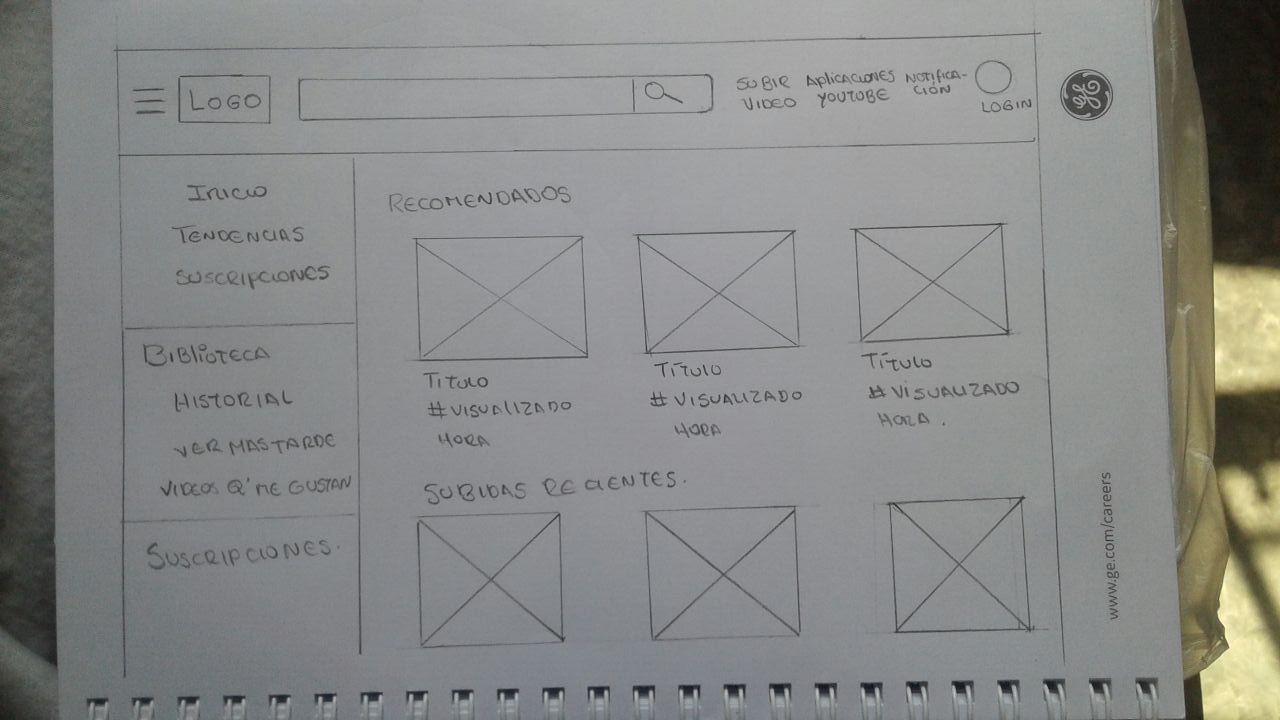 LOGO
SUBIR VIDEO
APLICACIONES YOUTUBE
NOTIFICA-
CIÓN
LOGIN
INICIO
TENDENCIAS
SUSCRIPCIONES
BIBLIOTECA
HISTORIAL
VER MAS TARDE
VIDEOS Q' ME GUSTAN
SUSCRIPCIONES.
RECOMENDADOS
TITULO
#VISUALIZADO
HORA
TÍTULO
#VISUALIZADO
HORA
TÍTULO
#VISUALIZADO
HORA.
SUBIDAS RECIENTES.
GE
www.ge.com/careers